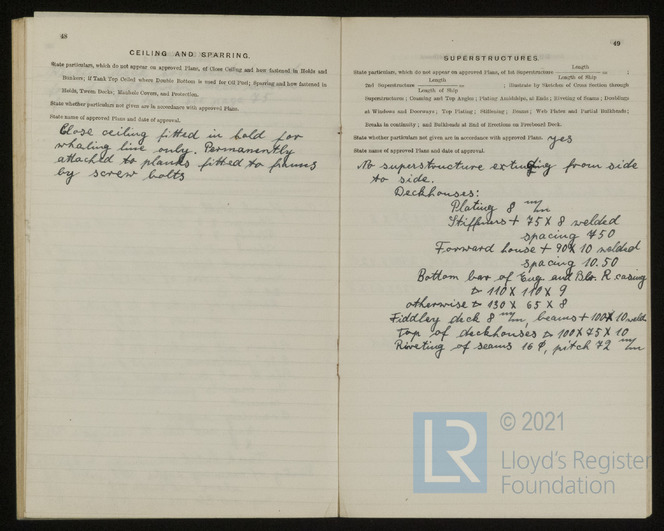 48
CEILING AND SPARRING.
State particulars, which do not appear on approved Plans, of Close Ceiling and how fastened in Holds and
Bunkers; if Tank Top Ceiled where Double Bottom is used for Oil Fuel; Sparring and how fastened in
Holds, Tween Decks; Manhole Covers, and Protection.
State whether particulars not given are in accordance with approved Plans.
State name of approved Plans and date of approval.
Close ceiling fitted in hold for
whaling line only. Permanently
attached to planks fitted to frames
by screw bolts
49
SUPERSTRUCTURES.
State particulars, which do not appear on approved Plans, of 1st Superstructure Length / Length of Ship = ;
2nd Superstructure Length / Length of Ship = ; illustrate by Sketches of Cross Section through
Superstructures; Coaming and Top Angles; Plating Amidships, at Ends; Riveting of Seams; Doublings
at Windows and Doorways; Top Plating; Stiffening; Beams; Web Plates and Partial Bulkheads;
Breaks in continuity; and Bulkheads at End of Erections on Freeboard Deck.
State whether particulars not given are in accordance with approved Plans. yes
State name of approved Plans and date of approval.
No superstructure extending from side
to side.
Deckhouses:
Plating 8 m/m
Stiffeners + 75 X 8 welded
spacing 750
Forward house + 90 X 10 welded
spacing 10.50
Bottom bar of Eng and Blr. R. casing
110 X 110 X 9
otherwise 130 X 65 X 8
Fiddley deck 8 m/m, beams + 100 X 10 weld
Top of deckhouses 100 X 75 X 10
Riveting of seams 16 φ, pitch 72 m/m
LR
© 2021
Lloyd's Register
Foundation